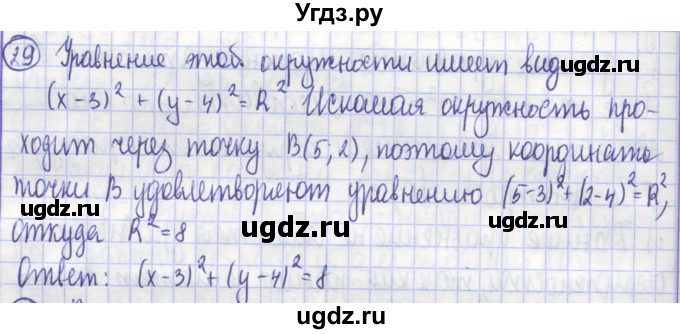 Угдз.ру
29 Уравнение этой окружности имеет вид
ugdz.ru
(x-3)² + (y-4)² = R². Искомая окружность про-
ходит через точку B(5; 2), поэтому координаты
точки B удовлетворяют уравнению (5-3)²+(2-4)²=R²,
ugdz.ru ugdz.ru
откуда R²=8
ugdz.ru
Ответ: (x-3)²+(y-4)²=8
ugdz.ru